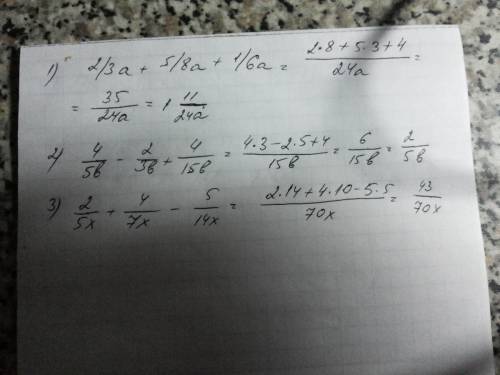 1) 2/3a + 5/8a + 1/6a = (2·8+5·3+4)/24a =
= 35/24a = 1 11/24a
2) 4/5в - 2/3в + 4/15в = (4·3-2·5+4)/15в = 6/15в = 2/5в
3) 2/5x + 4/7x - 5/14x = (2·14+4·10-5·5)/70x = 43/70x